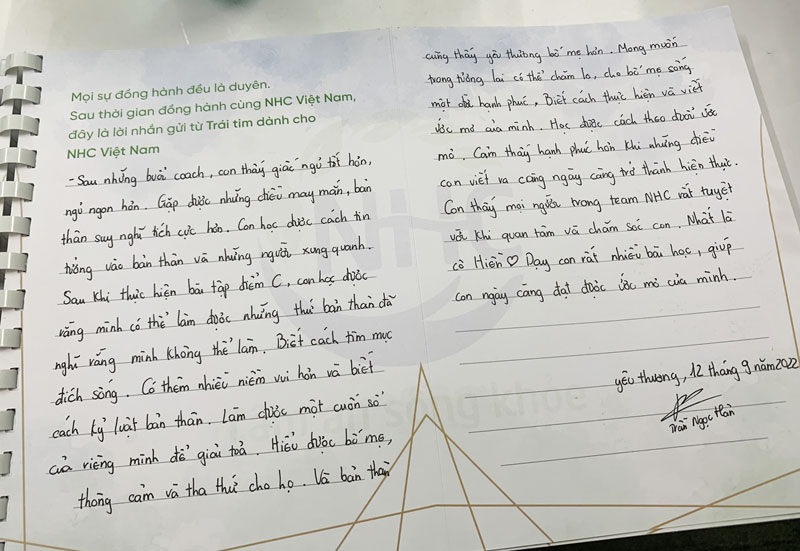 Mọi sự đồng hành đều là duyên.
Sau thời gian đồng hành cùng NHC Việt Nam,
đây là lời nhắn gửi từ Trái tim dành cho
NHC Việt Nam
- Sau những buổi coach, con thấy giấc ngủ tốt hơn,
ngủ ngon hơn. Gặp được những điều may mắn, bản
thân suy nghĩ tích cực hơn. Con học được cách tin
tưởng vào bản thân và những người xung quanh.
Sau khi thực hiện bài tập điểm C, con học được
rằng mình có thể làm được những thứ bản thân đã
nghĩ rằng mình không thể làm. Biết cách tìm mục
đích sống. Có thêm nhiều niềm vui hơn và biết
cách kỷ luật bản thân. Làm được một cuốn sổ
của riêng mình để giải toả. Hiểu được bố mẹ,
thông cảm và tha thứ cho họ. Và bản thân
cũng thấy yêu thương bố mẹ hơn. Mong muốn
trong tương lai có thể chăm lo, cho bố mẹ sống
một đời hạnh phúc. Biết cách thực hiện và viết
ước mơ của mình. Học được cách theo đuổi ước
mơ. Cảm thấy hạnh phúc hơn khi những điều
con viết ra càng ngày càng trở thành hiện thực.
Con thấy mọi người trong team NHC rất tuyệt
vời khi quan tâm và chăm sóc con. Nhất là
cô Hiền ♡ Dạy con rất nhiều bài học, giúp
con ngày càng đạt được ước mơ của mình.
yêu thương, 12 tháng 9 năm 2022
Trần Ngọc Hân
NHC